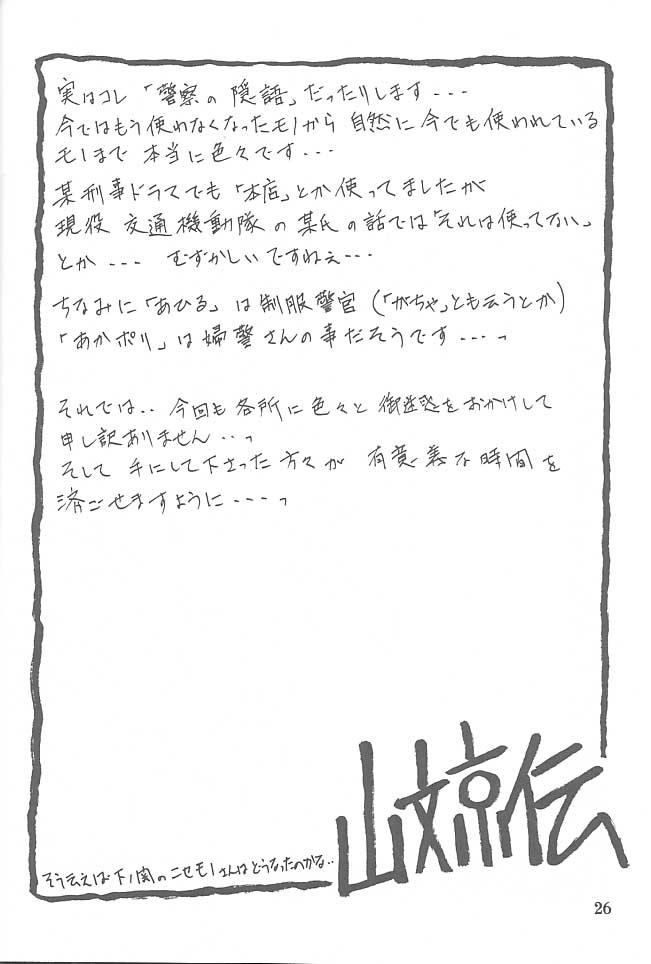 実はコレ「警察の隠語」だったりします---
今ではもう使わなくなったモノから 自然に今でも使われている
モノまで 本当に色々です---
某刑事ドラマでも「本店」とか使ってましたが
現役 交通機動隊の某氏の話では「それは使ってない」
とか --- むずかしいですねぇ---
ちなみに「あひる」は制服警官(「がちゃ」とも云うとか)
「あかポリ」は婦警さんの事だそうです---っ
それでは.. 今回も各所に色々と御迷惑をおかけして
申し訳ありません..っ
そして 手にして下さった方々が 有意義な時間を
済ごせますように---っ
山文京伝
そう云えば下ノ関のニセモノさんはどうなったのかな..
26